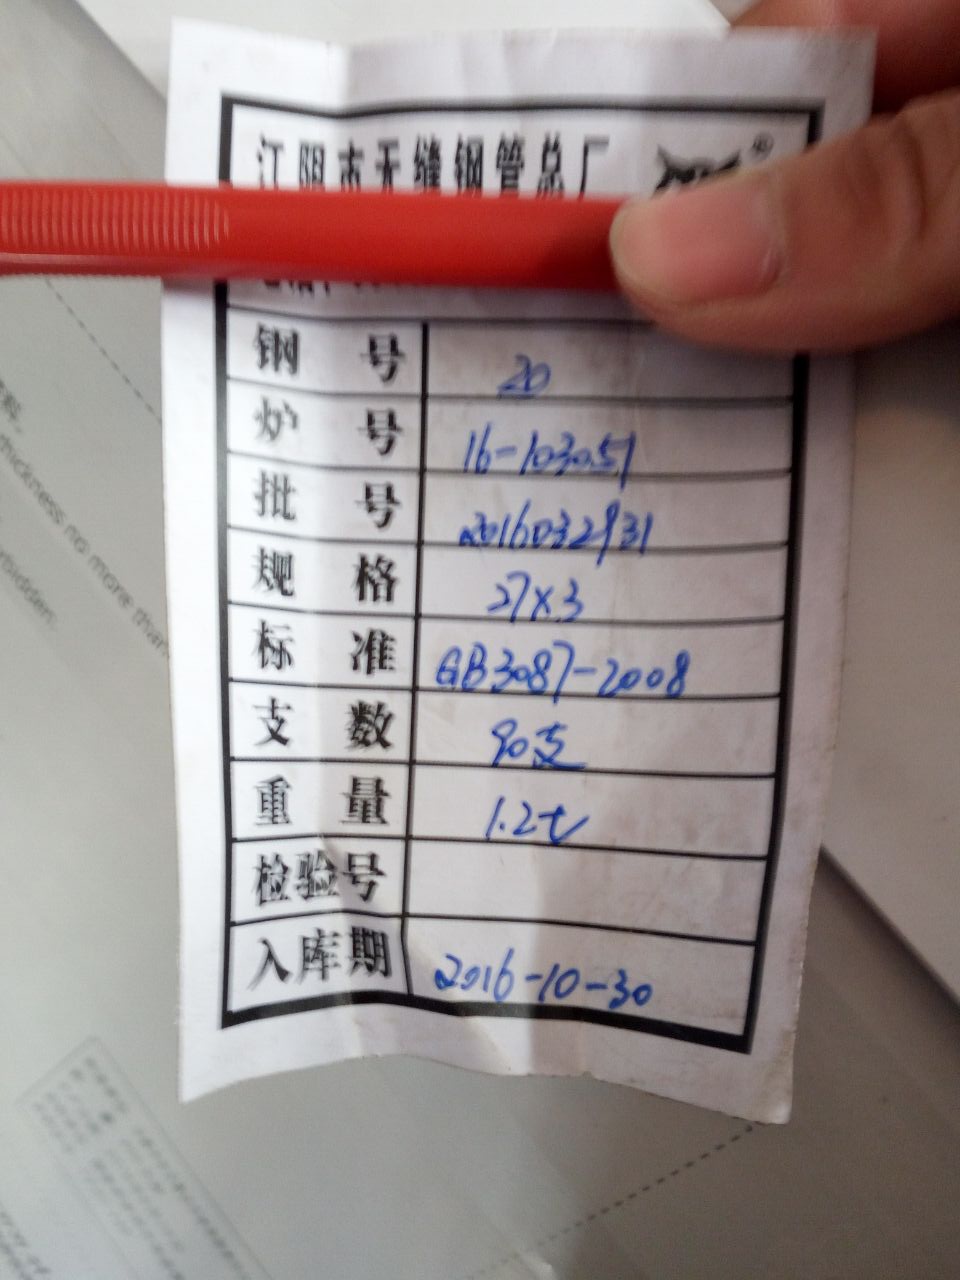 江阴市无缝钢管总厂 ®
钢号 20
炉号 16-103051
批号 2016032931
规格 27×3
标准 GB3087-2008
支数 90支
重量 1.2t
检验号
入库期 2016-10-30
thickness no more than